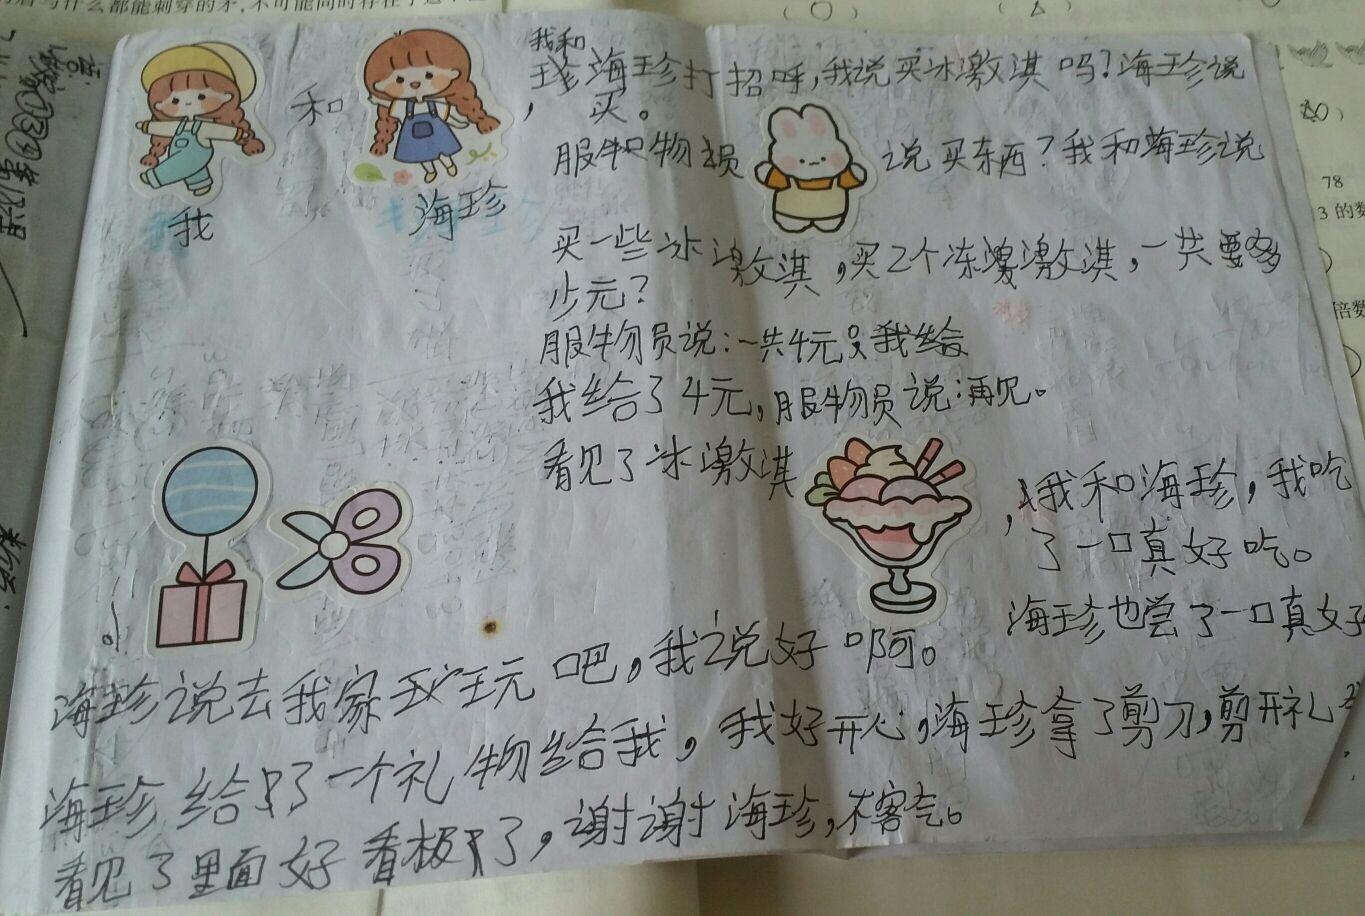 和
我
海珍
我和
海珍打招呼,我说买冰激淇吗?海珍说
, 买。
服物员 说买东西?我和海珍说
买一些冰激淇,买2个冻激淇,一共要多
少元?
服物员说:一共4元 我给
我给了4元,服物员说:再见。
看见了冰激淇
,我和海珍,我吃
了一口真好吃。
海珍也尝了一口真好
海珍说去我家玩吧,我说好啊。
海珍给了一个礼物给我,我好开心,海珍拿了剪刀,剪开礼
看见了里面好看极了,谢谢海珍,不客气。
78
3的数
倍数